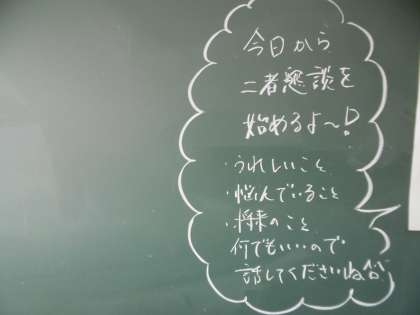 今日から
二者懇談を
始めるよ～!
・うれしいこと
・悩んでいること
・将来のこと
何でもいいので
話してくださいね